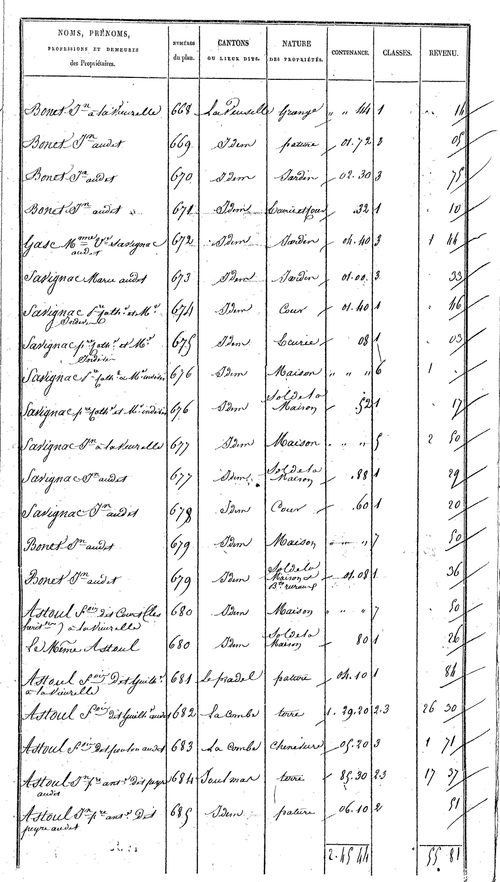 NOMS, PRÉNOMS, PROFESSIONS ET DEMEURES des Propriétaires. NUMÉROS du plan. CANTONS OU LIEUX DITS. NATURE DES PROPRIÉTÉS. CONTENANCE. CLASSES. REVENU.
Bonet Jn à la Vieurelle 668 La Vieurelle Grange " " 44 1 16
Bonet Jn audit 669 Idem pature 01.72 3 05
Bonet Jn audit 670 Idem Jardin 02.30 3 75
Bonet Jn audit 671 Idem .32 1 10
Gasc Mme Ve Savignac audit 672 Idem Jardin 04.40 3 1 44
Savignac Marie audit 673 Idem Jardin 01.00 3 33
Savignac 674 Idem Cour 01.40 1 46
Savignac 675 Idem Ecurie 08 1 03
Savignac 676 Idem Maison " " " 6 1 .
Savignac 676 Idem Sol de la Maison .52 1 17
Savignac Jn à la Vieurelle 677 Idem Maison " " " 5 2 50
Savignac Jn audit 677 Idem Sol de la Maison .88 1 29
Savignac Jn audit 678 Idem Cour .60 1 20
Bonet Jn audit 679 Idem Maison " " " 7 50
Bonet Jn audit 679 Idem Sol de la Maison 01.08 1 36
Astoul Fois dit à la Vieurelle 680 Idem Maison " " " 7 50
Le Même Astoul 680 Idem Sol de la Maison 80 1 26
Astoul Fois Dit à la Vieurelle 681 Le pradel pature 04.10 1 84
Astoul Fois dit audit 682 La Combe terre 1.29.20 2.3 26 30
Astoul Fois dit audit 683 La Combe Cheneviere 05.20 3 1 71
Astoul Jn pre audit 684 terre 85.30 2 3 17 37
Astoul Jn pre audit 685 Idem pature 06.10 2 51
2.45.44 55 81